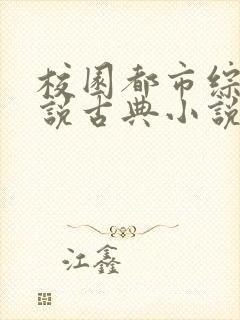 校园都市综
說古典小說
江鑫